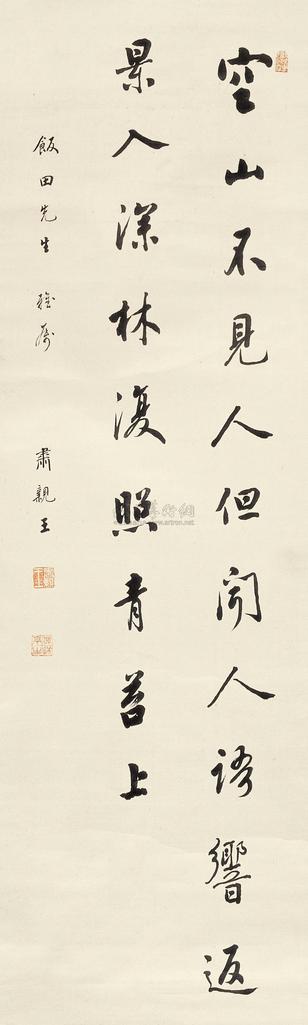 空山不見人但聞人語響返
景入深林復照青苔上
飯田先生 雅屬 肅親王